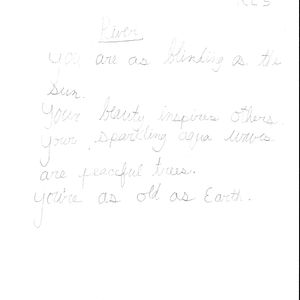 River
you are as blinding as the
sun.
Your beauty inspires others.
Your sparkling aqua waves
are peaceful trees.
you're as old as Earth.